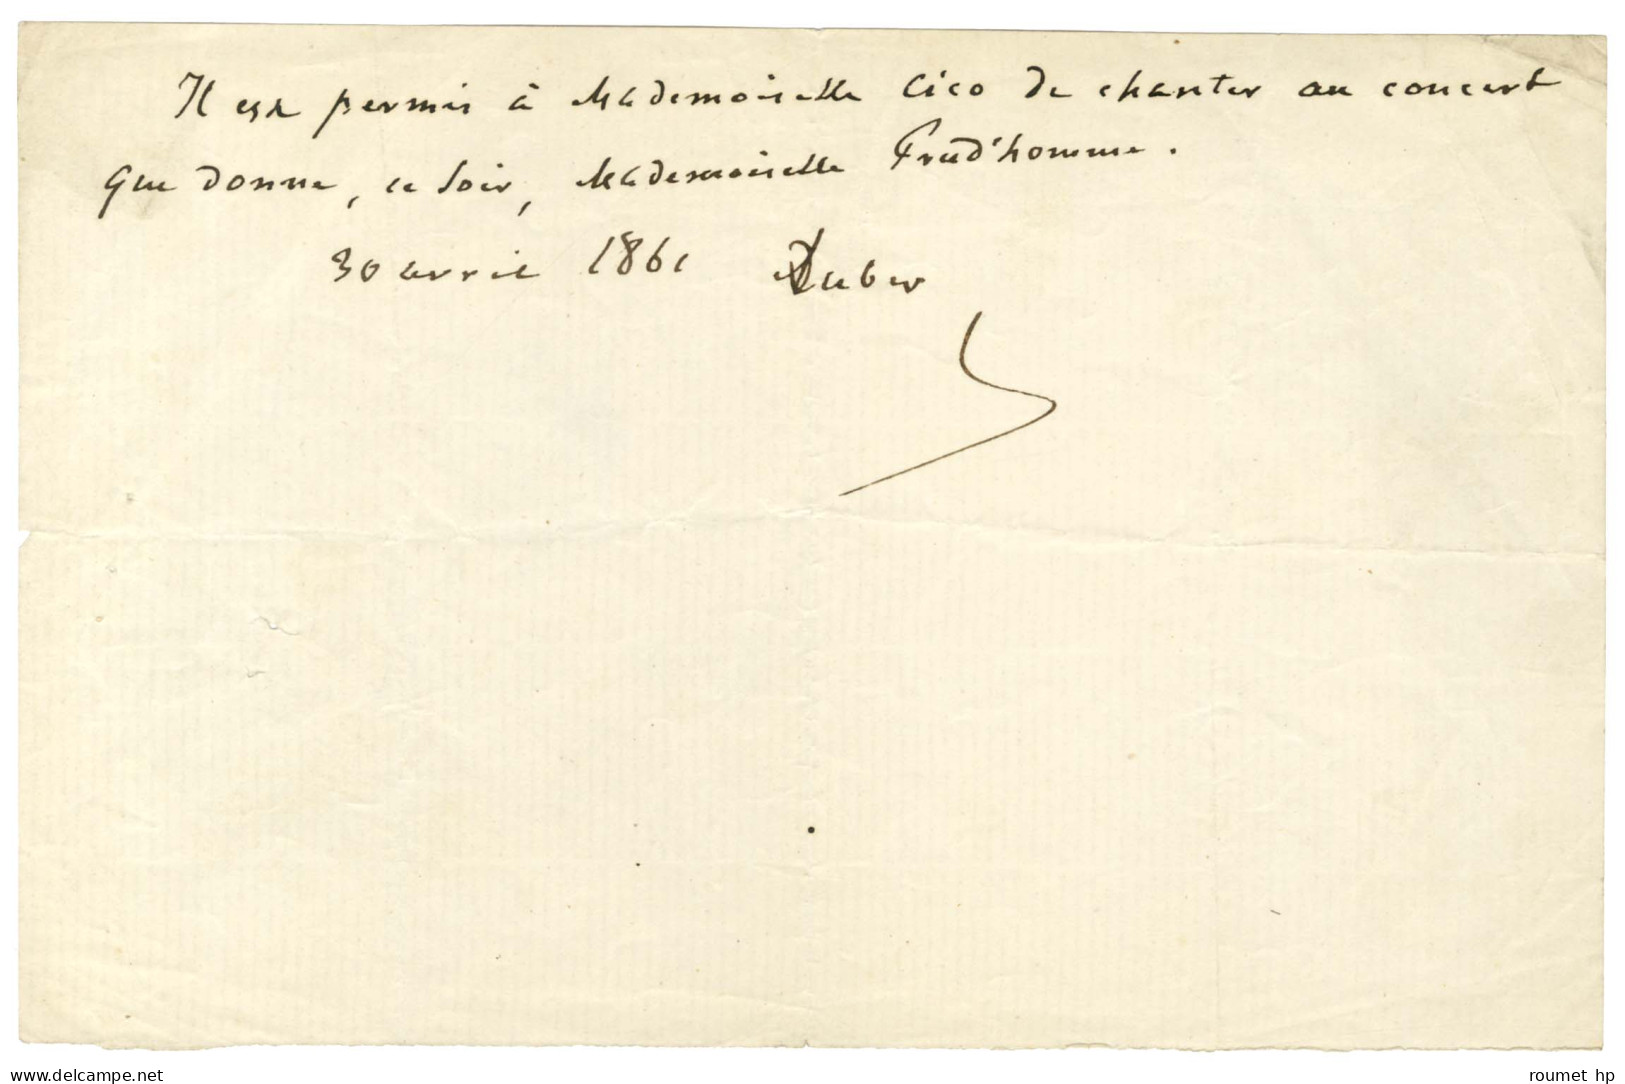 Il est permis à Mademoiselle Cico de chanter au concert
que donne, ce soir, Mademoiselle Prud'homme.
30 avril 1861 Auber
www.delcampe.net
roumet hp